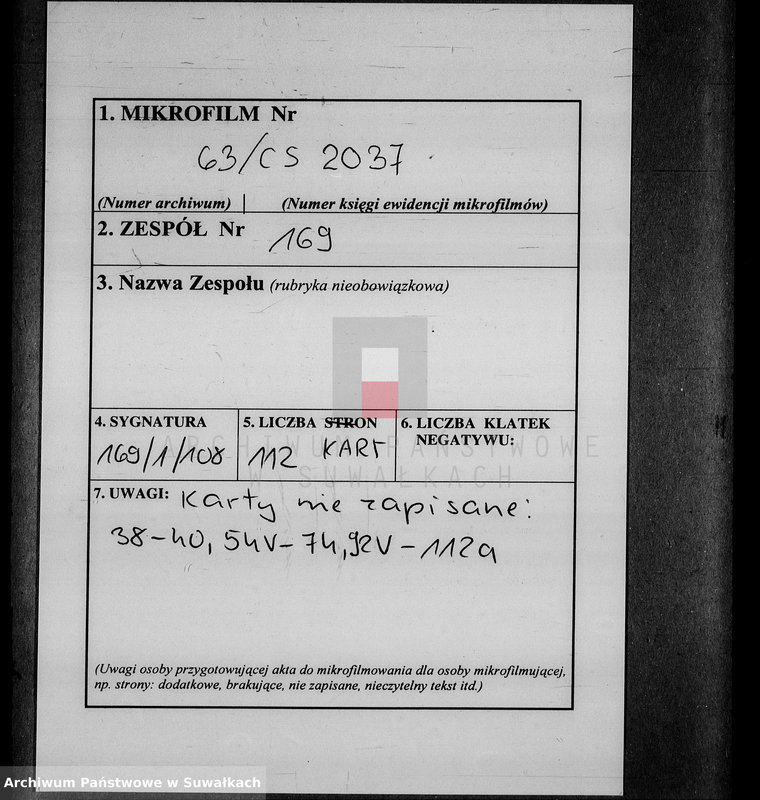 1. MIKROFILM Nr
63/CS 2037
(Numer archiwum) (Numer księgi ewidencji mikrofilmów)
2. ZESPÓŁ Nr 169
3. Nazwa Zespołu (rubryka nieobowiązkowa)
4. SYGNATURA
169/1/108
5. LICZBA STRON
112 KART
6. LICZBA KLATEK
NEGATYWU:
ARCHIWUM PAŃSTWOWE
W SUWAŁKACH
7. UWAGI: Karty nie zapisane:
38-40, 54V-74, 92V-112a
(Uwagi osoby przygotowującej akta do mikrofilmowania dla osoby mikrofilmującej,
np. strony: dodatkowe, brakujące, nie zapisane, nieczytelny tekst itd.)
Archiwum Państwowe w Suwałkach